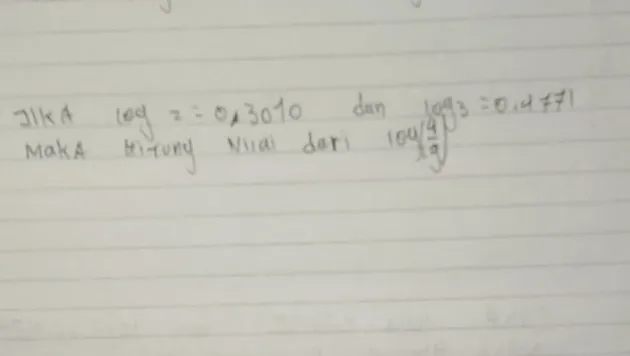 JIKA log 2 = 0,3010 dan log 3 = 0,4771
MAKA Hitung Nilai dari log(4/9)